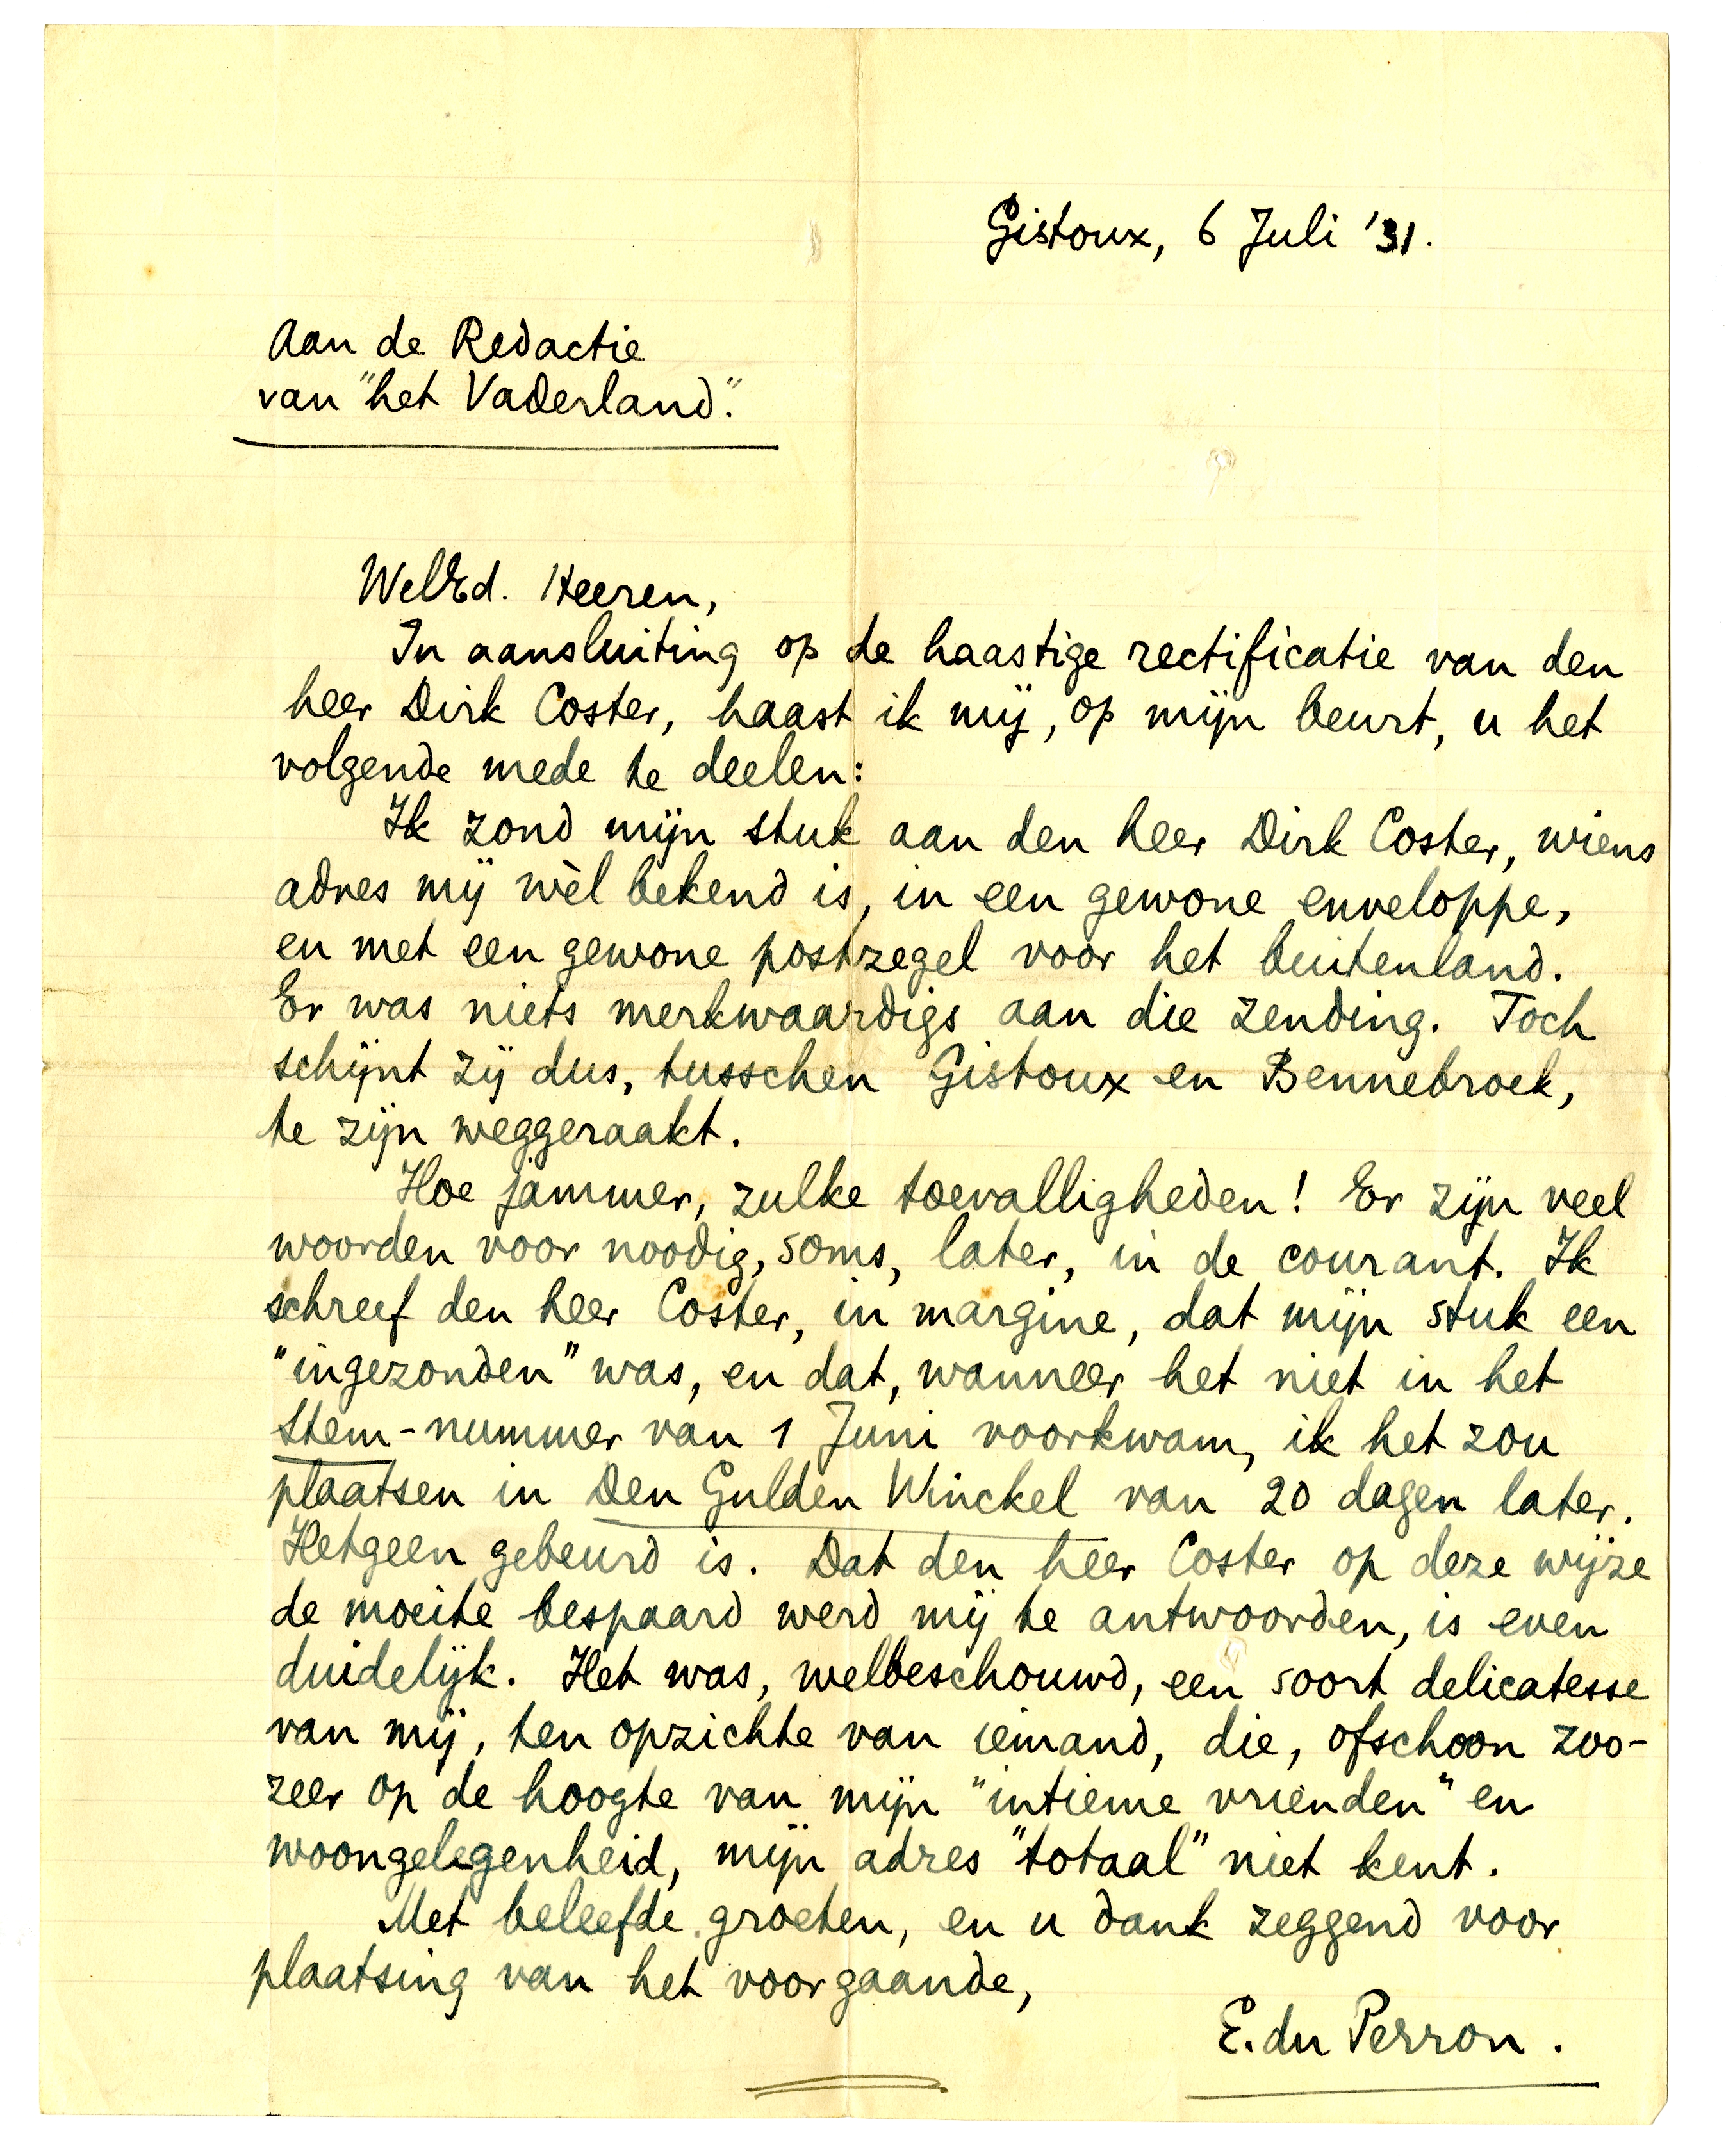 Gistoux, 6 Juli '31.
Aan de Redactie
van "het Vaderland".
WelEd. Heeren,
In aansluiting op de haastige rectificatie van den
heer Dirk Coster, haast ik mij, op mijn beurt, u het
volgende mede te deelen:
Ik zond mijn stuk aan den heer Dirk Coster, wiens
adres mij wèl bekend is, in een gewone enveloppe,
en met een gewone postzegel voor het buitenland.
Er was niets merkwaardigs aan die zending. Toch
schijnt zij dus, tusschen Gistoux en Bennebroek,
te zijn weggeraakt.
Hoe jammer, zulke toevalligheden! Er zijn veel
woorden voor noodig, soms, later, in de courant. Ik
schreef den heer Coster, in margine, dat mijn stuk een
"ingezonden" was, en dat, wanneer het niet in het
Stem-nummer van 1 Juni voorkwam, ik het zou
plaatsen in Den Gulden Winckel van 20 dagen later.
Hetgeen gebeurd is. Dat den heer Coster op deze wijze
de moeite bespaard werd mij te antwoorden, is even
duidelijk. Het was, welbeschouwd, een soort delicatesse
van mij, ten opzichte van iemand, die, ofschoon zoo-
zeer op de hoogte van mijn "intieme vrienden" en
woongelegenheid, mijn adres "totaal" niet kent.
Met beleefde groeten, en u dank zeggend voor
plaatsing van het voorgaande,
E. du Perron.